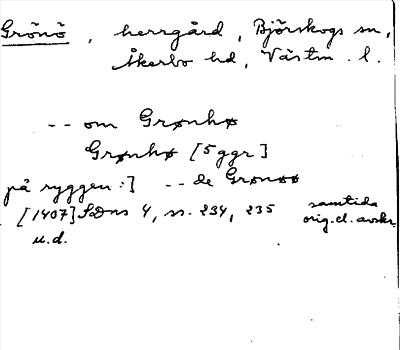 Grönö, herrgård, Björskogs sn,
Åkerbo hd, Västm. l.
-- om Grønhø
Grønhø [5 ggr]
på ryggen:] -- de Grønøø
[1407] SDns 4, ss. 234, 235 samtida
orig. el. avskr.
u.d.